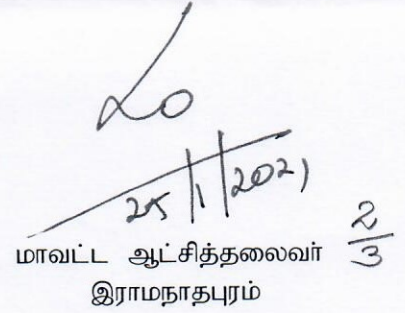 25/1/2021
மாவட்ட ஆட்சித்தலைவர் 2/3
இராமநாதபுரம்